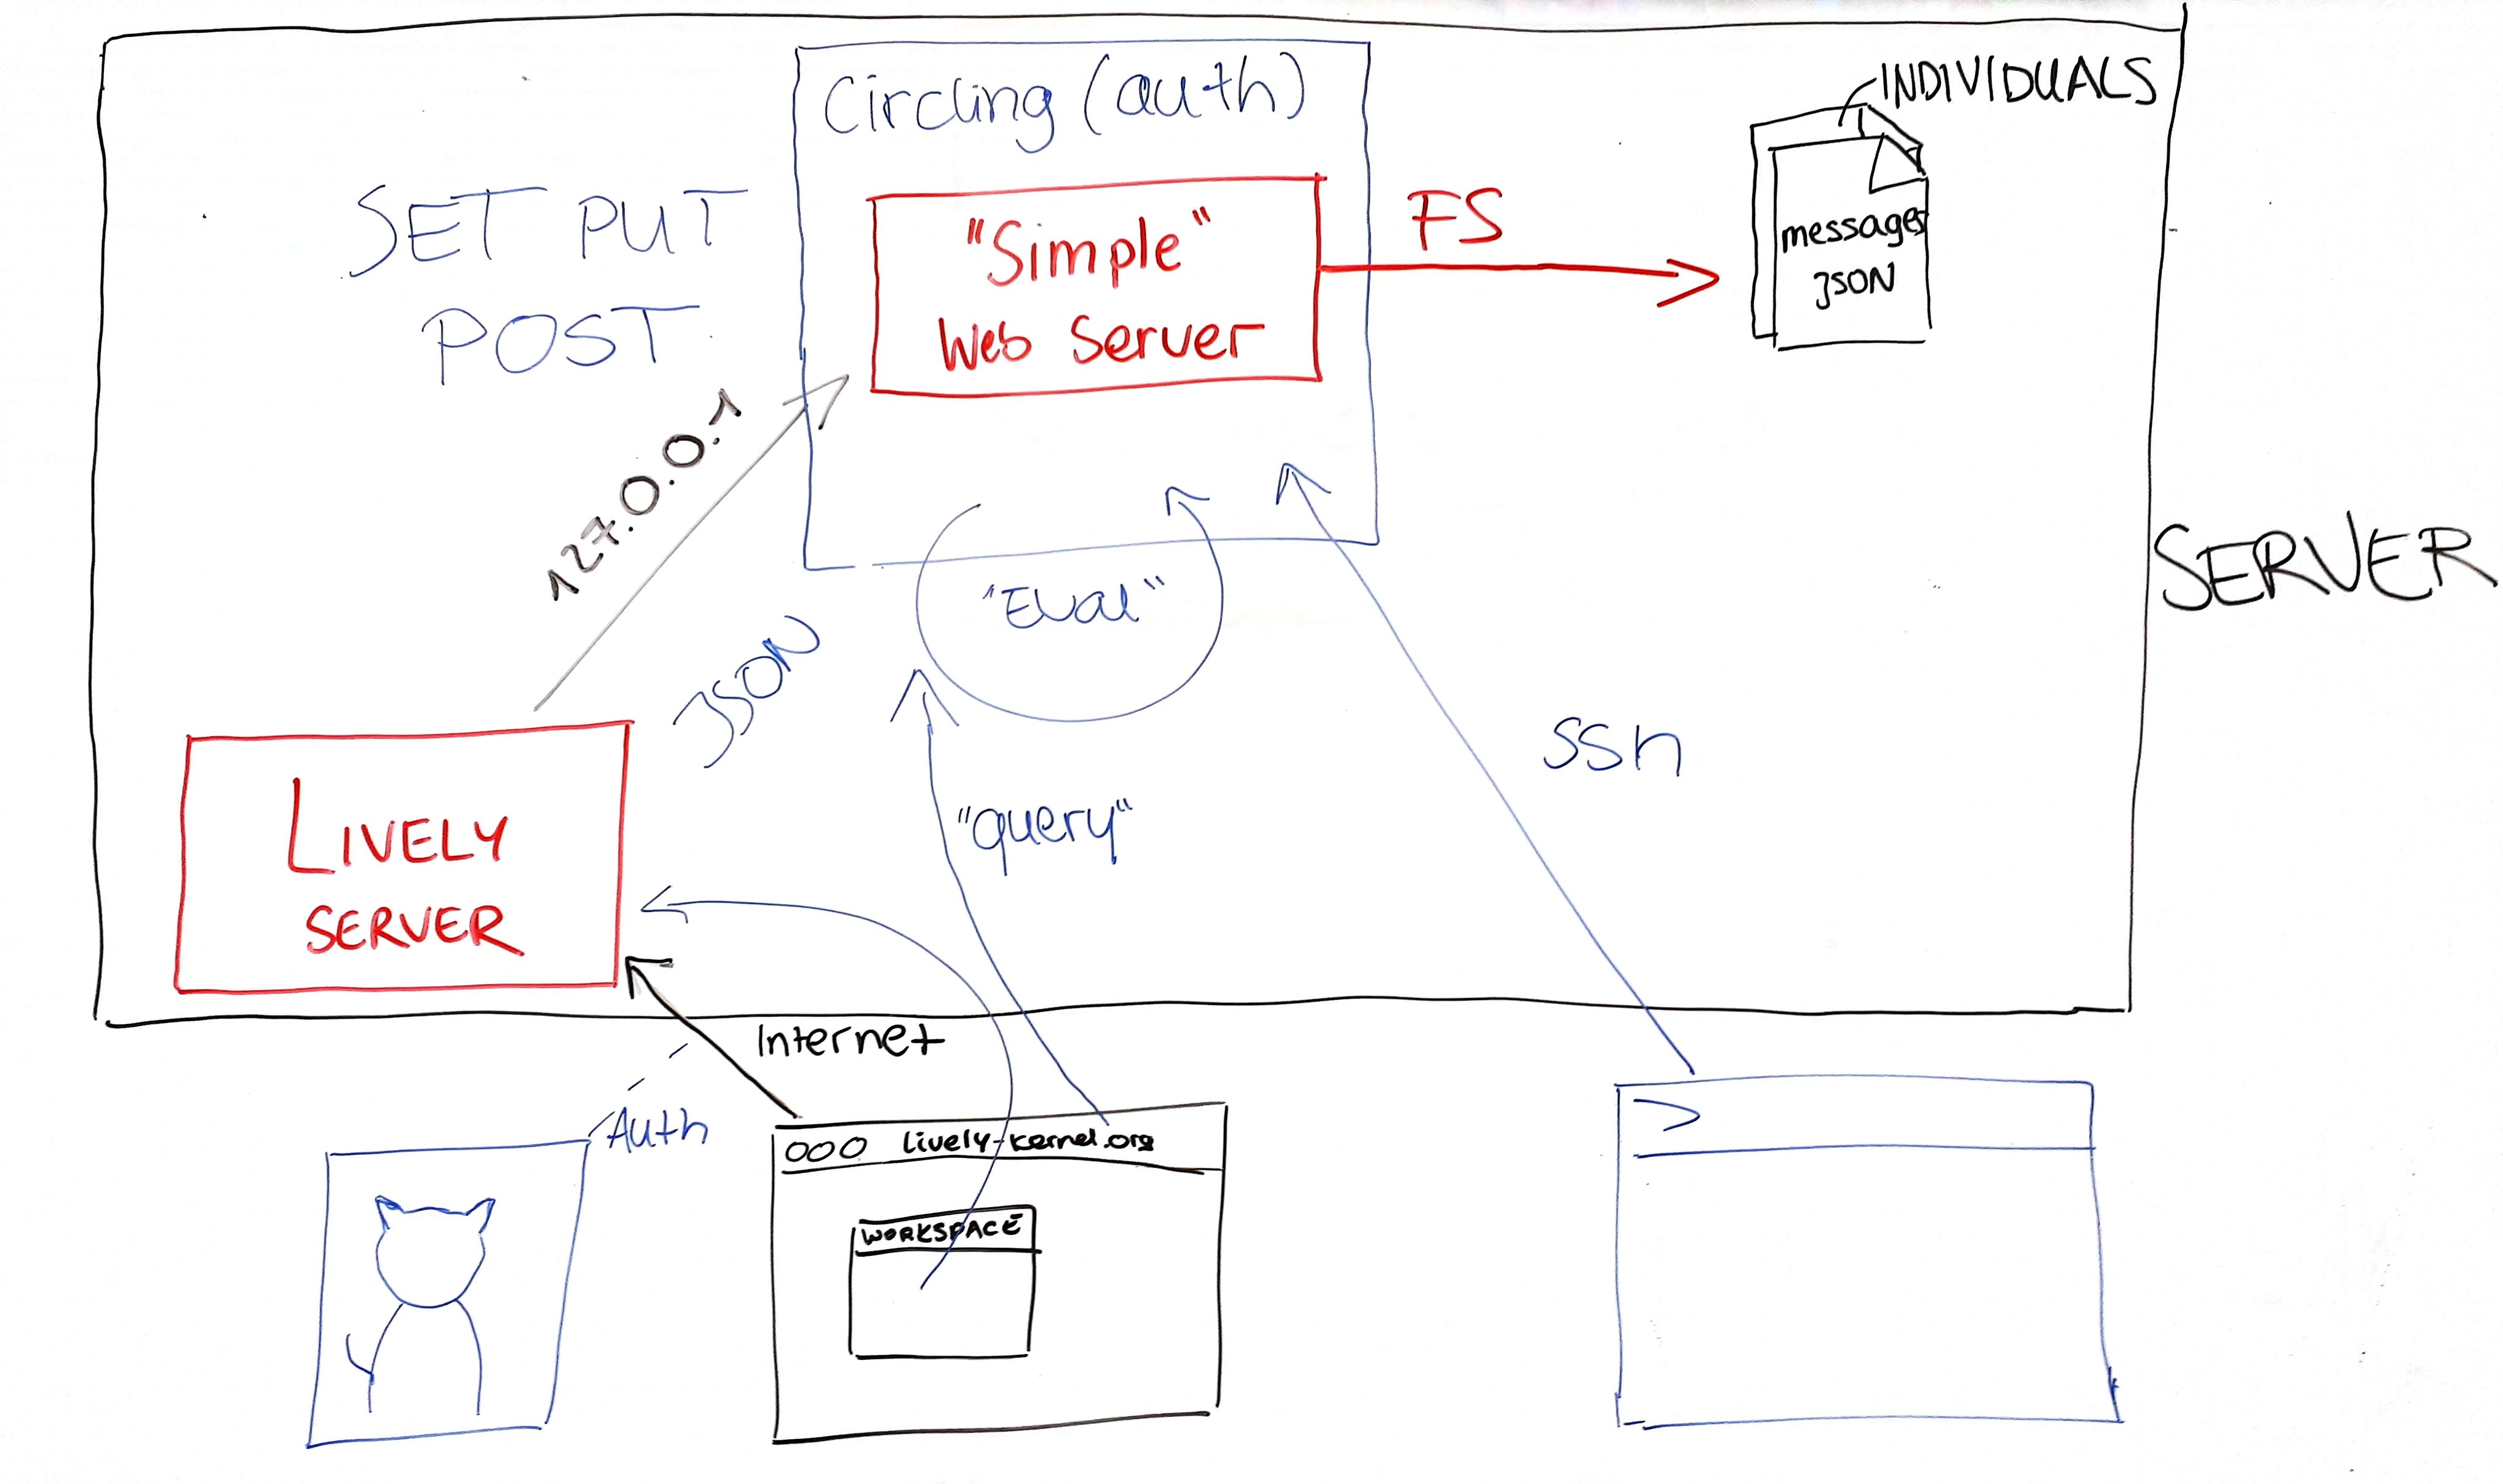 Circling (auth)
INDIVIDUALS
SET PUT
POST
"Simple"
Web Server
FS
messages
JSON
127.0.0.1
"Eval"
SERVER
JSON
ssh
"query"
LIVELY
SERVER
Internet
Auth
lively-kernel.org
WORKSPACE
>